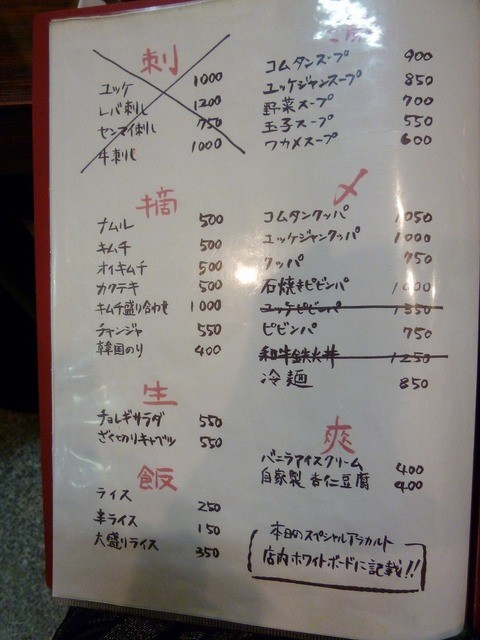 刺
ユッケ 1000
レバ刺し 1200
センマイ刺し 750
牛刺し 1000
摘
ナムル 500
キムチ 500
オイキムチ 500
カクテキ 500
キムチ盛り合わせ 1000
チャンジャ 550
韓国のり 400
生
チョレギサラダ 550
ざく切りキャベツ 550
飯
ライス 250
半ライス 150
大盛りライス 350
コムタンスープ 900
ユッケジャンスープ 850
野菜スープ 700
玉子スープ 550
ワカメスープ 600
〆
コムタンクッパ 1050
ユッケジャンクッパ 1000
クッパ 750
石焼きビビンパ 1000
ユッケビビンパ 1350
ビビンパ 750
和牛鉄火丼 1250
冷麺 850
爽
バニラアイスクリーム 400
自家製 杏仁豆腐 400
本日のスペシャルアラカルト
店内ホワイトボードに記載!!